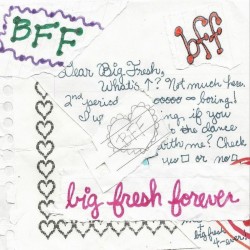 BFF
bff
Dear Big Fresh,
What's ↑? Not much here.
2nd period boring!
I
ing, if you
to the dance
with me? Check
yes □ or no □
BFF
big fresh forever
big fresh
4-ever